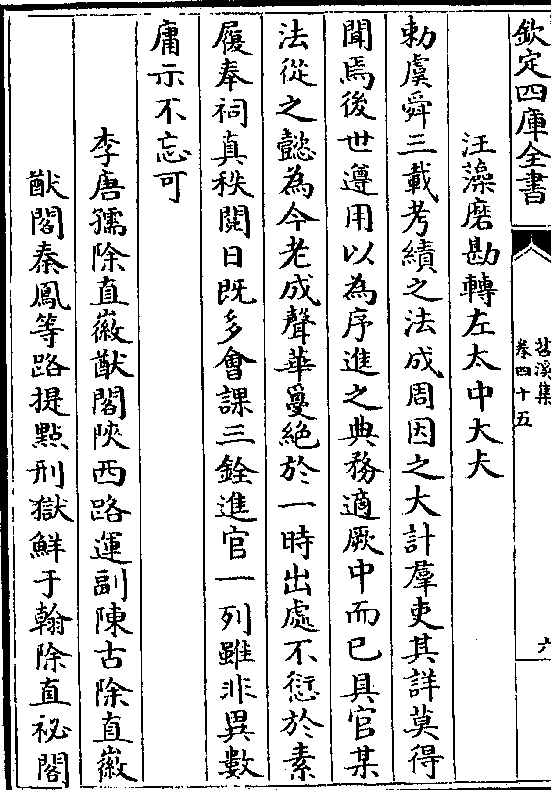 欽定四庫全書
苕溪集
卷四十五
六
汪藻磨勘轉左太中大夫
勅虞舜三載考績之法成周因之大計羣吏其詳莫得
聞焉後世遵用以為序進之典務適厥中而已具官某
法從之懿為今老成聲華夐絶於一時出處不愆於素
履奉祠真秩閲日既多會課三銓進官一列雖非異數
庸示不忘可
李唐孺除直徽猷閣陝西路運副陳古除直徽
猷閣秦鳳等路提㸃刑獄鮮于翰除直祕閣